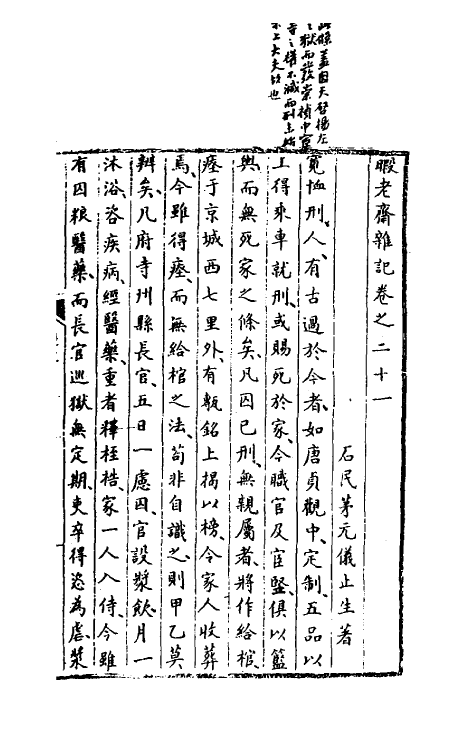 此條蓋因天啓楊左
之獄而發崇禎中宦
寺之橫不減而刑主始
不上大夫始也
暇老齋雜記卷之二十一
石民茅元儀止生著
寬恤刑人有古過於今者如唐貞觀中定制五品以
上得乘車就刑或賜死於家今職官及宦豎俱以籃
輿而無死家之條矣凡囚已刑無親屬者將作給棺
瘞于京城西七里外有甎銘上揭以榜令家人收葬
焉今雖得瘞而無給棺之法苟非自識之則甲乙莫
辨矣凡府寺州縣長官五日一慮囚官設漿飲月一
沐浴咨疾病經醫藥重者釋桎梏家一人入侍今雖
有囚粮醫藥而長官巡獄無定期吏卒得恣為虐漿